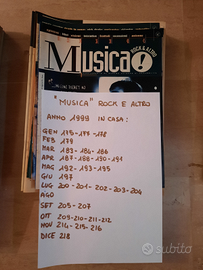 Musica!
ROCK & ALTRO
"MUSICA" ROCK E ALTRO
ANNO 1999 IN CASA:
GEN 175-177-178
FEB 179
MAR 183-184-186
APR 187-188-190-191
MAG 192-193-195
GIU 197
LUG 200-201-202-203-204
AGO
SET 205-207
OTT 209-210-211-212
NOV 214-215-216
DICE 218
subito